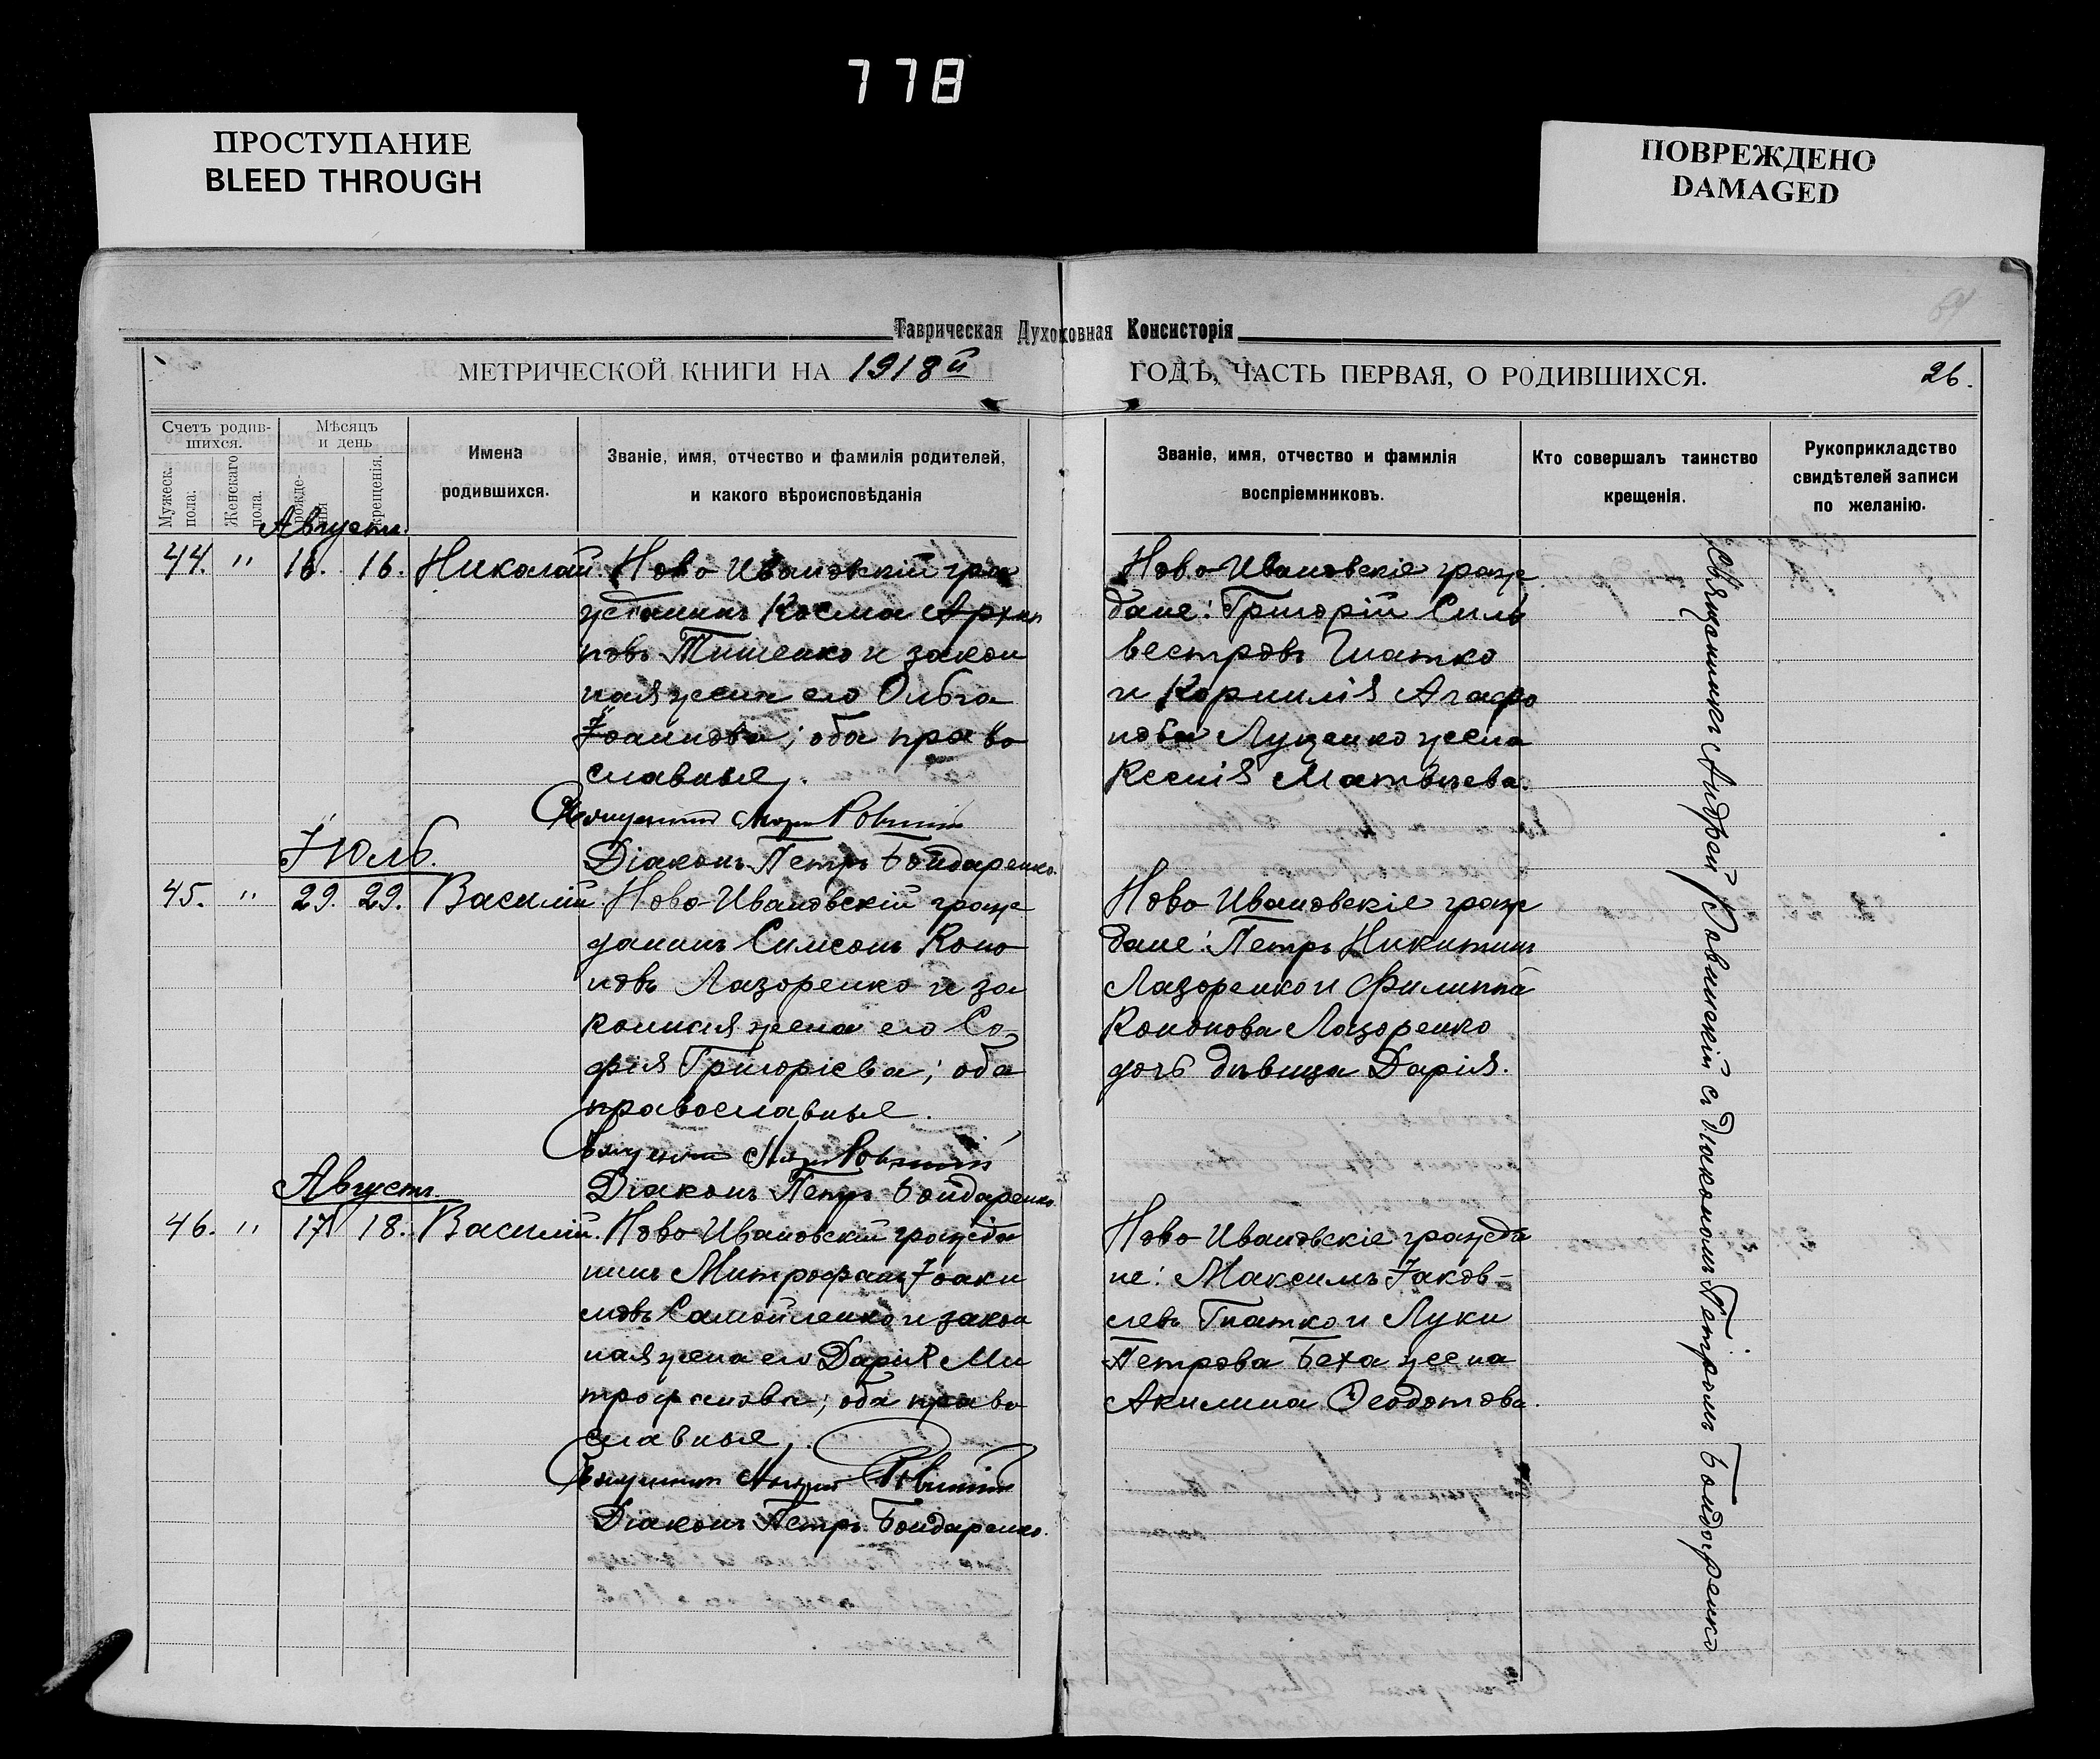 778
ПРОСТУПАНИЕ
BLEED THROUGH
ПОВРЕЖДЕНО
DAMAGED
Таврическая Духоховная Консисторія
МЕТРИЧЕСКОЙ КНИГИ НА 1918й ГОДЪ, ЧАСТЬ ПЕРВАЯ, О РОДИВШИХСЯ. 26.
Счетъ родив-
шихся.
Мужеск. пола.
Женскаго пола.
Мѣсяцъ
и день
рожде-
нія
крещенія.
Имена
родившихся.
Званіе, имя, отчество и фамилія родителей,
и какого вѣроисповѣданія
Званіе, имя, отчество и фамилія
воспріемниковъ.
Кто совершалъ таинство
крещенія.
Рукоприкладство
свидѣтелей записи
по желанію.
Августъ.
44. " 16. Николай. Ново-Ивановскій гра
жданинъ Косма Архип
повъ Тишенко и закон
ная жена его Ольга
Іоаннова; оба право
славные.
Діаконъ Петръ Бондаренко
Ново-Ивановскіе граж
дане: Григорій Силь
вестровъ Гнатко
и Корнилія Агафо
нова Луценко жена
Ксенія Матвѣева.
Іюль.
45. " 29. 29. Василій. Ново-Ивановскій граж
данинъ Симеонъ Коно
новъ Лазоренко и за
конная жена его Со-
фія Григоріева; оба
православные.
Діаконъ Петръ Бондаренко
Ново-Ивановскіе граж
дане: Петръ Никитинъ
Лазоренко и Филиппа
Кононова Лазоренко
дочь дѣвица Дарія.
Августъ.
46. " 17 18. Василій. Ново-Ивановскій гражда
нинъ Митрофанъ Іоаки
мовъ Самойленко и закон
ная жена его Дарія Ми
трофанова; оба право
славные.
Діаконъ Петръ Бондаренко.
Ново-Ивановскіе гражда
не: Максимъ Іаков-
левъ Гнатко и Луки
Петрова Беха жена
Акилина Ѳеодотова.
Священникъ Андрей Ровинскій съ діакономъ Петромъ Бондаренко